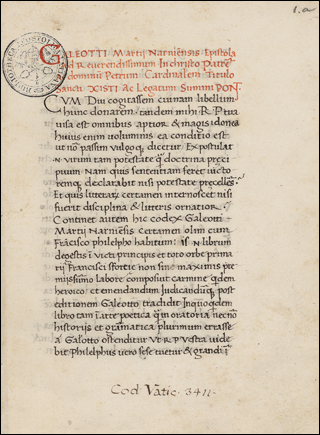 1.a
GALEOTTI Martij Narniēnsis Epistola
ad R euerendissimum In christo Patrē
dominū Petrum Cardinalem Titulo
Sancti XISTI Ac Legatum Sumni PON.
CVM Diu cogitassem cuinam libellum
hunc donarem tandem mihi R P tua
uisa est omnibus aptior & magis idonea
huius enim uoluminis ea conditio est
ut nō passim uulgoq dicetur Expostulat
N utrim tam potestate q doctrina preci
puum Nam quis sententiam feret iucto
remq declarabit nisi potestate precellēs
Et quis litteras certamen internoscet nisi
fuerit disciplina & litteris ornatior
Continet autem hic codex Galeoti
Martij Narniēnsis certamen olim cum
Frācisco philelpho habitum: is N librum
de gestis
toto orbe prima
rij Francisci sfortie non sine maximis
missimo labore composuit carmine qdem
heroico et emendandum Iudicandūq post
editionem Galeotto tradidit Inquo qdem
libro tam ī arte poetica q in oratoria necnō
historijs et gramatica plurimum errasse
a Galotto ostenditur Vt R P Vestra uide
bit Philelphus uero sese tuetur & grandi
Cod. Vatic. 3411.